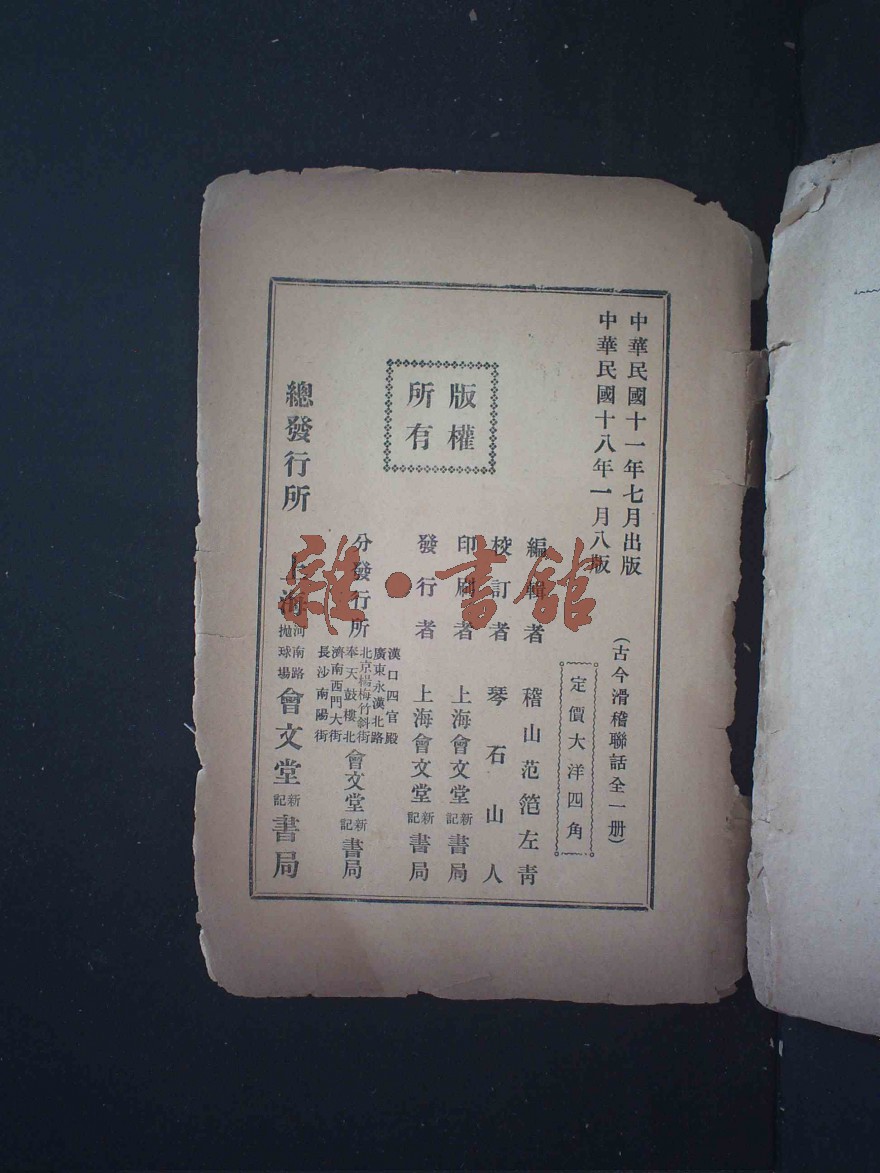 中華民國十一年七月出版
中華民國十八年一月八版
(古今滑稽聯話全一册)
定價大洋四角
版權
所有
編輯者 稽山范笵左青
校訂者 琴石山人
印刷者 上海會文堂新記書局
發行者 上海會文堂新記書局
分發行所
漢口四官殿
廣東永漢北路
北京楊梅竹斜街
奉天鼓樓北
濟南西門大街
長沙南陽街
會文堂新記書局
總發行所 上海
河南路
拋球場
會文堂新記書局
雜·書館